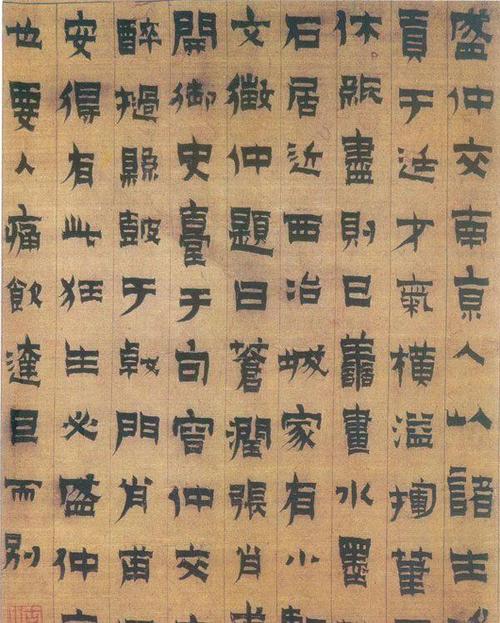 盛仲交南京人以諸生
貢于廷才氣橫溢揮筆
休紙盡則已善畫水墨
石居近西冶城家有小
文徵仲題曰蒼潤張肖
開御史臺于句容仲交
醉撾縣鼓于戟門肖甫
安得有此狂生必盛仲
也要入痛飲達旦而別